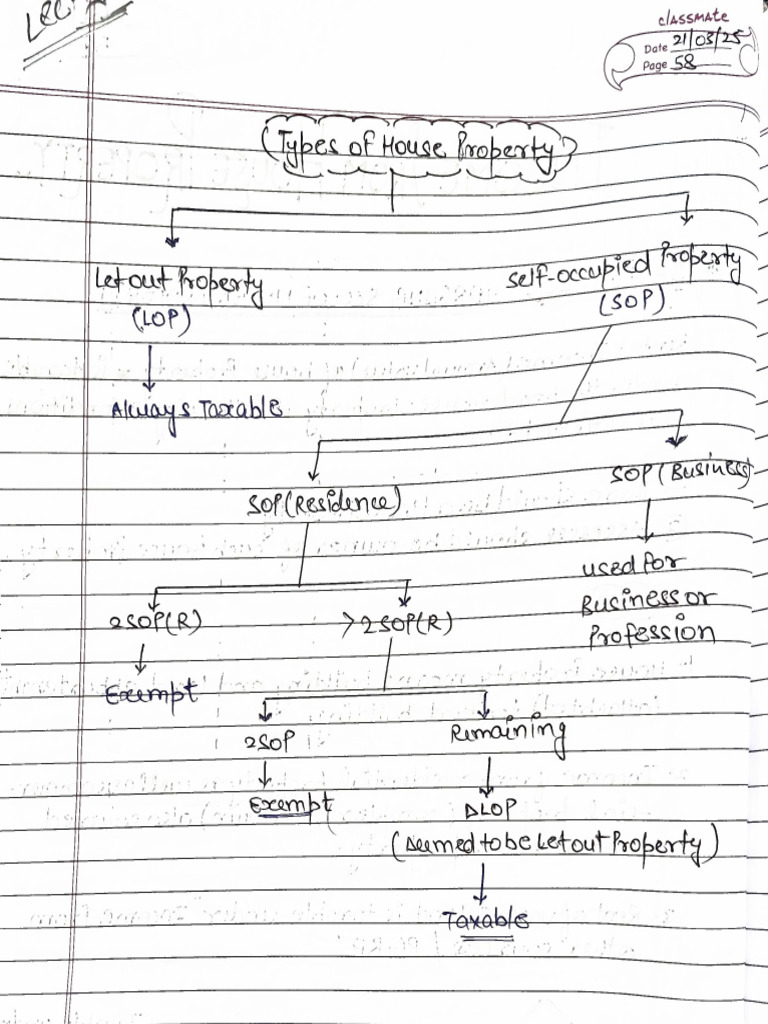 Lec
classmate
Date 21/03/25
Page 58
Types of House Property
Let out Property
(LOP)
Always Taxable
Self-occupied Property
(SOP)
SOP(Residence)
SOP(Business)
2SOP(R)
>2SOP(R)
used for
Business or
Profession
Exempt
2SOP
Remaining
Exempt
DLOP
(Deemed to be Let out Property)
Taxable